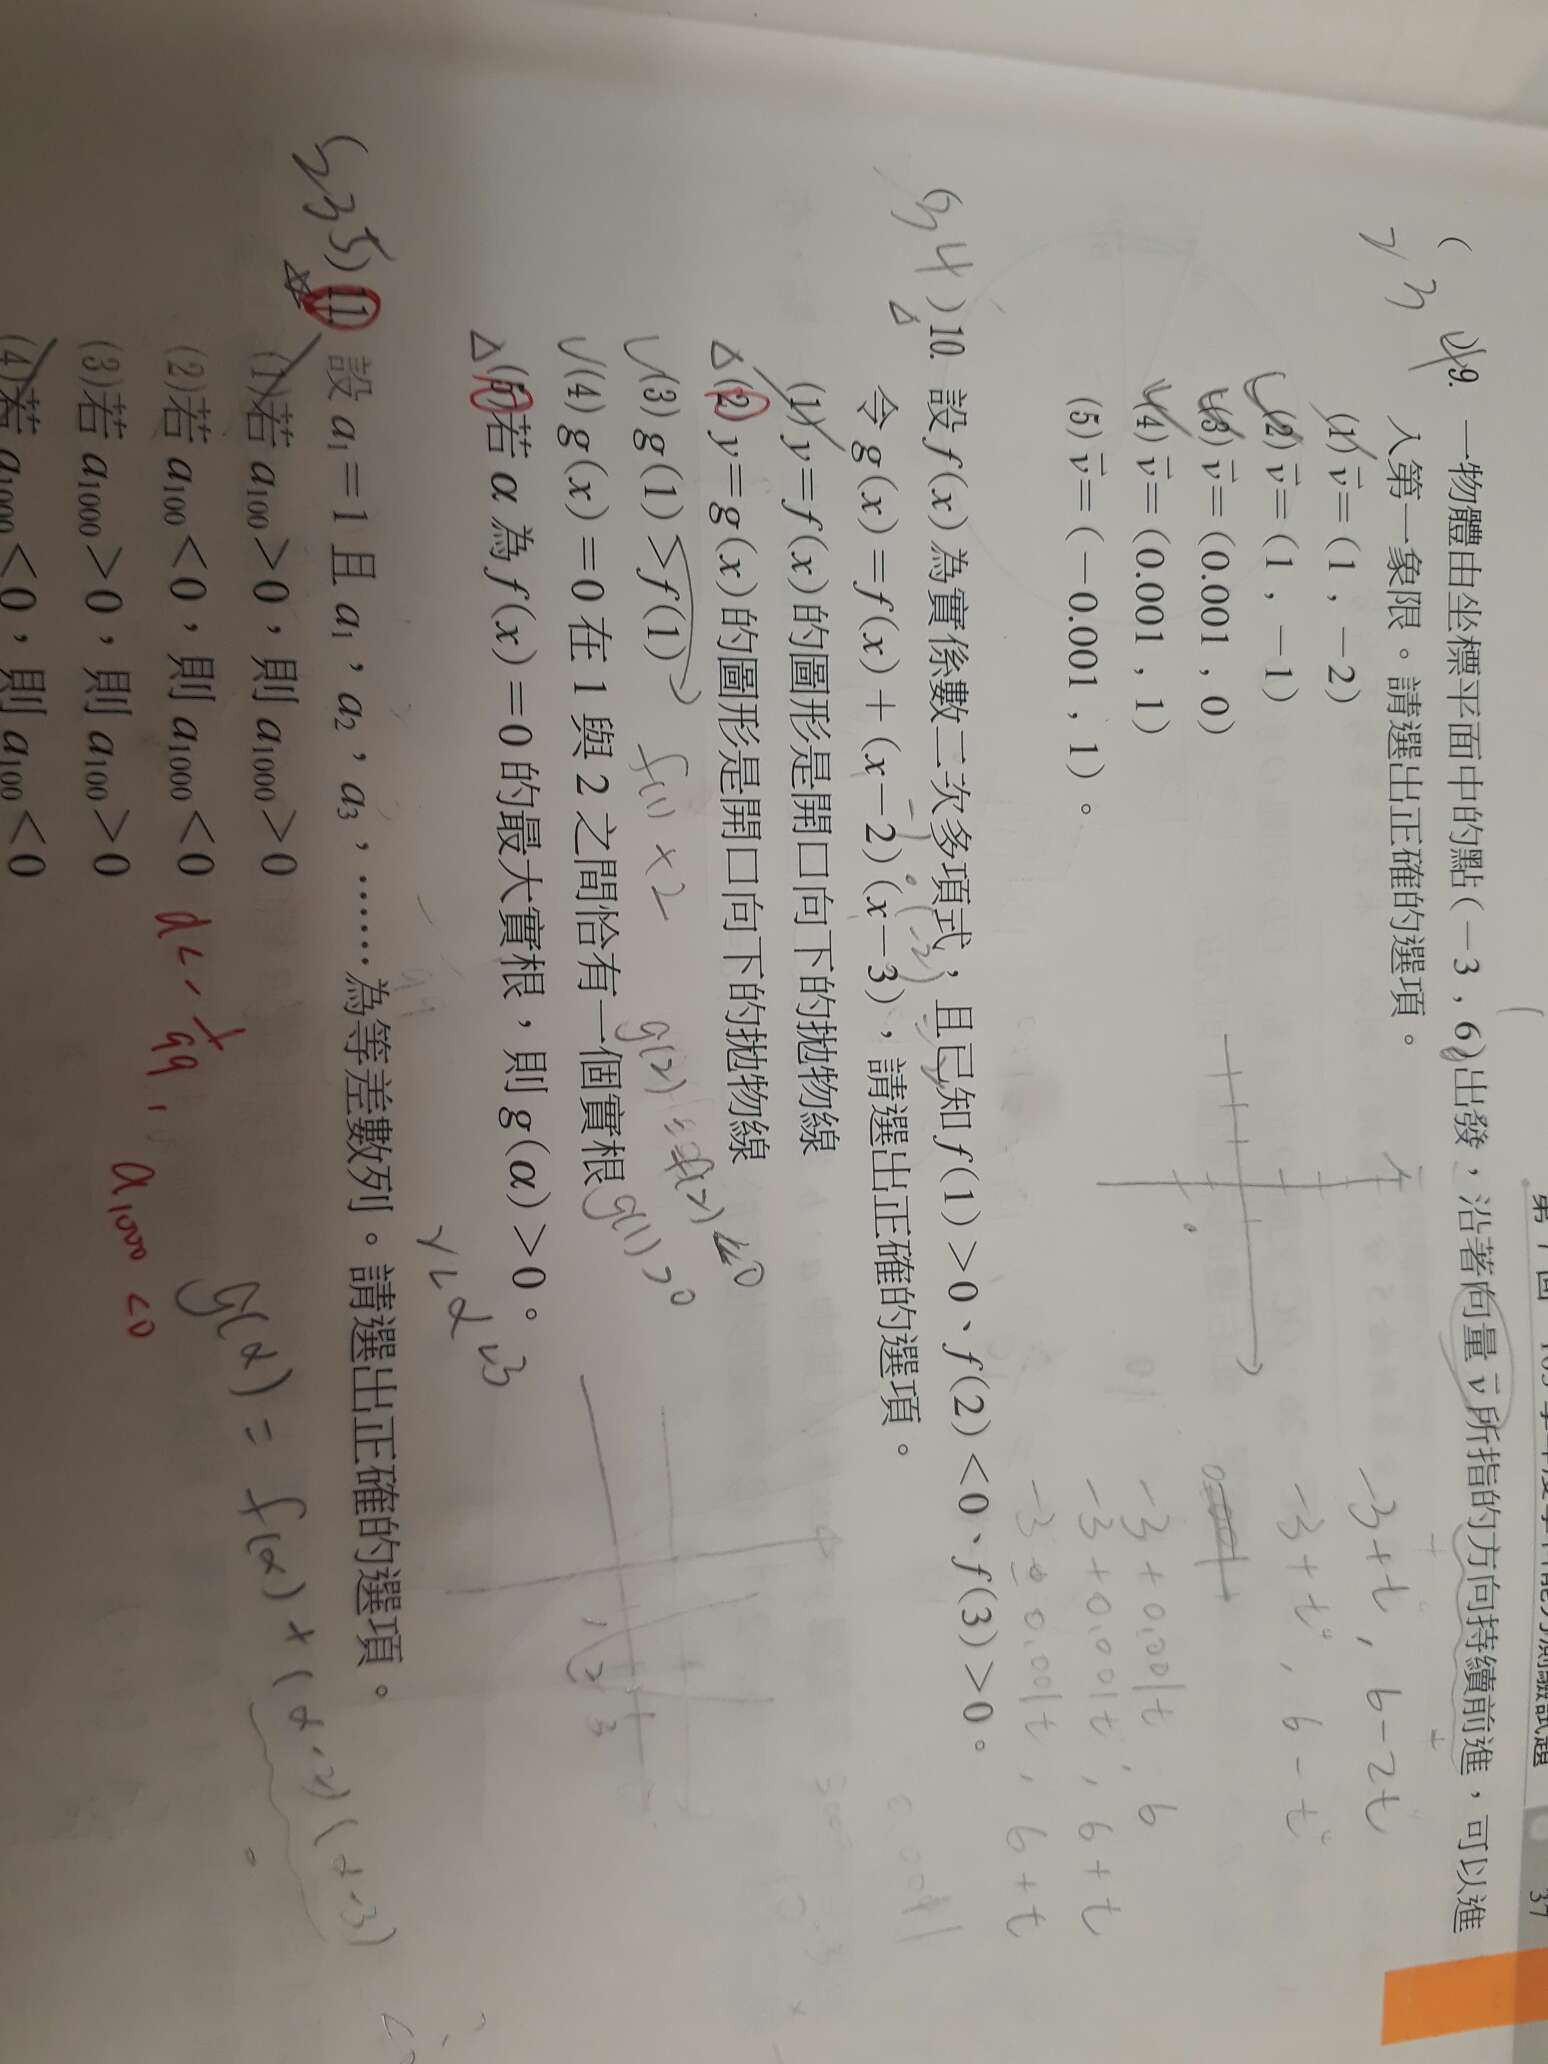 37
9. 一物體由坐標平面中的點(－3，6)出發，沿著向量v所指的方向持續前進，可以進
入第一象限。請選出正確的選項。
(1) v＝(1，－2)
(2) v＝(1，－1)
(3) v＝(0.001，0)
(4) v＝(0.001，1)
(5) v＝(－0.001，1)。
-3+t, 6-2t
-3+t, 6-t
-3+0.001t, 6
-3+0.001t, 6+t
-3-0.001t, 6+t
(34) 10. 設 f(x) 為實係數二次多項式，且已知 f(1)＞0、f(2)＜0、f(3)＞0。
令 g(x)＝f(x)＋(x－2)(x－3)，請選出正確的選項。
(1) y＝f(x) 的圖形是開口向下的拋物線
(2) y＝g(x) 的圖形是開口向下的拋物線
(3) g(1)＞f(1) f(1)+2
(4) g(x)＝0 在 1 與 2 之間恰有一個實根 g(1)>0
(5) 若 α 為 f(x)＝0 的最大實根，則 g(α)＞0。
2<α<3
1 2 3
g(α) = f(α) + (α-2)(α-3)
(235) 11. 設 a₁＝1 且 a₁，a₂，a₃，……為等差數列。請選出正確的選項。
(1) 若 a₁₀₀＞0，則 a₁₀₀₀＞0
(2) 若 a₁₀₀＜0，則 a₁₀₀₀＜0
(3) 若 a₁₀₀₀＞0，則 a₁₀₀＞0
(4) 若 a₁₀₀₀＜0，則 a₁₀₀＜0
a₁₀₀₀ <0